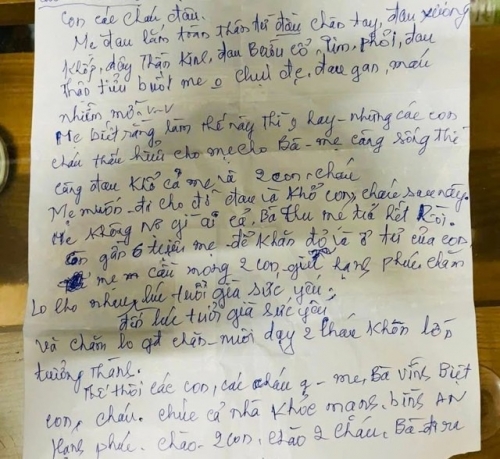 Con các cháu đâu.
Mẹ đau lắm toàn thân từ đầu chân tay, đau xương
khớp, dây thần kinh, đau bướu cổ, tim, phổi, đau
thận tiểu buốt mẹ o chịu đc, đau gan, máu
nhiễm mỡ v-v
Mẹ biết rằng làm thế này thì o hay - nhưng các con
cháu thấu hiểu cho mẹ cho Bà - mẹ càng sống thì
càng đau khổ cả mẹ và 2 con - cháu
Mẹ muốn đi cho đỡ đau và khổ con, cháu sau này.
Mẹ không nợ gì ai cả, Bà thu mẹ trả hết rồi.
Còn gần 6 triệu mẹ để khăn đỏ và ở tủ của con
mẹ cầu mong 2 con giữ hạnh phúc, chăm
lo cho nhau lúc tuổi già sức yếu,
lúc tuổi già sức yếu
và chăm lo chăn nuôi dạy 2 cháu khôn lớn
trưởng thành.
Thế thôi các con, các cháu ạ - mẹ, Bà vĩnh Biệt
con, cháu. chúc cả nhà khỏe mạnh, bình AN
Hạnh phúc. chào 2 con, chào 2 cháu. Bà